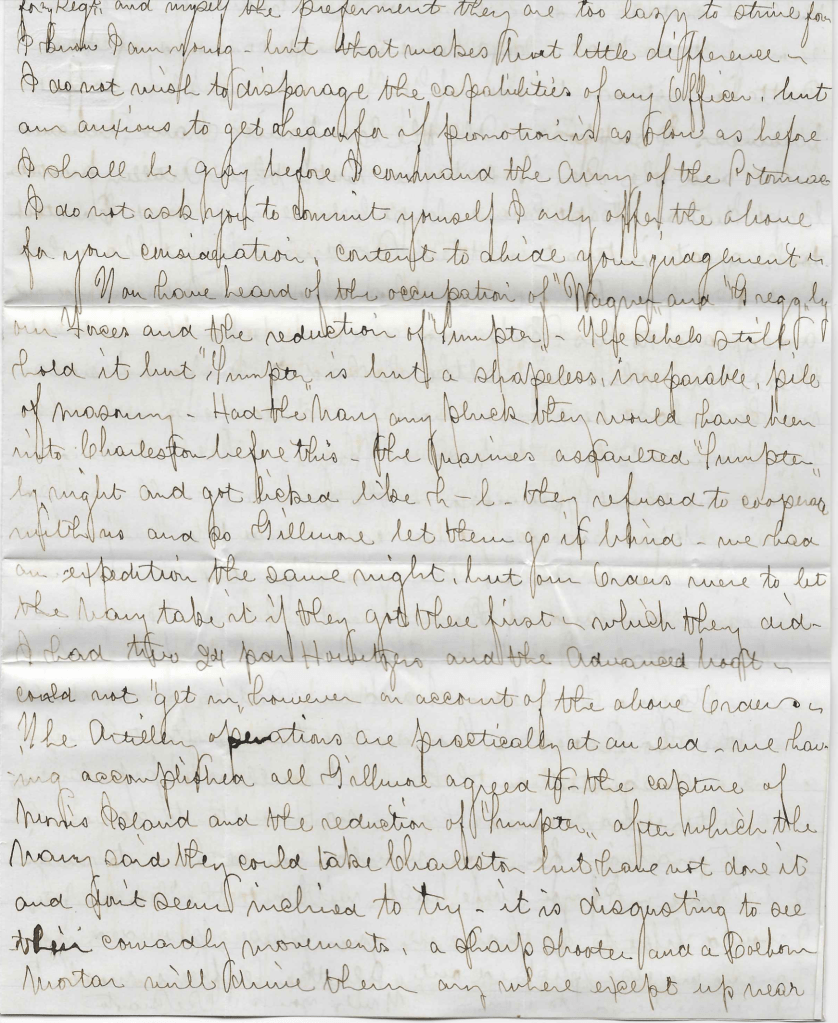 for my Regt. and myself the preferment they are too lazy to strive for
I know I am young - but that makes but little difference -
I do not wish to disparage the capabilities of any Officer, but
am anxious to get ahead for if promotion is as slow as before
I shall be gray before I command the Army of the Potomac
I do not ask you to commit yourself I only offer the above
for your consideration, content to abide your judgement -
You have heard of the occupation of "Wagner" and "Gregg" by
our Forces and the reduction of "Sumpter" - The Rebels still
hold it but "Sumpter" is but a shapeless, irreparable, pile
of masonry - Had the Navy any pluck they would have been
into Charleston before this - The Marines assaulted "Sumpter"
by night and got licked like h-l - they refused to cooperate
with us and so Gillmore let them go it blind - we had
an expedition the same night, but our Orders were to let
the Navy take it if they got there first - which they did -
I had two 24 pdr Howitzers and the Advanced boat -
could not "get in" however on account of the above Orders -
The Artillery operations are practically at an end - we hav-
ing accomplished all Gillmore agreed to - the capture of
Morris Island and the reduction of "Sumpter" after which the
Navy said they could take Charleston but have not done it
and don't seem inclined to try - it is disgusting to see
their cowardly movements, a sharp shooter and a Coehorn
Mortar will drive them any where except up near